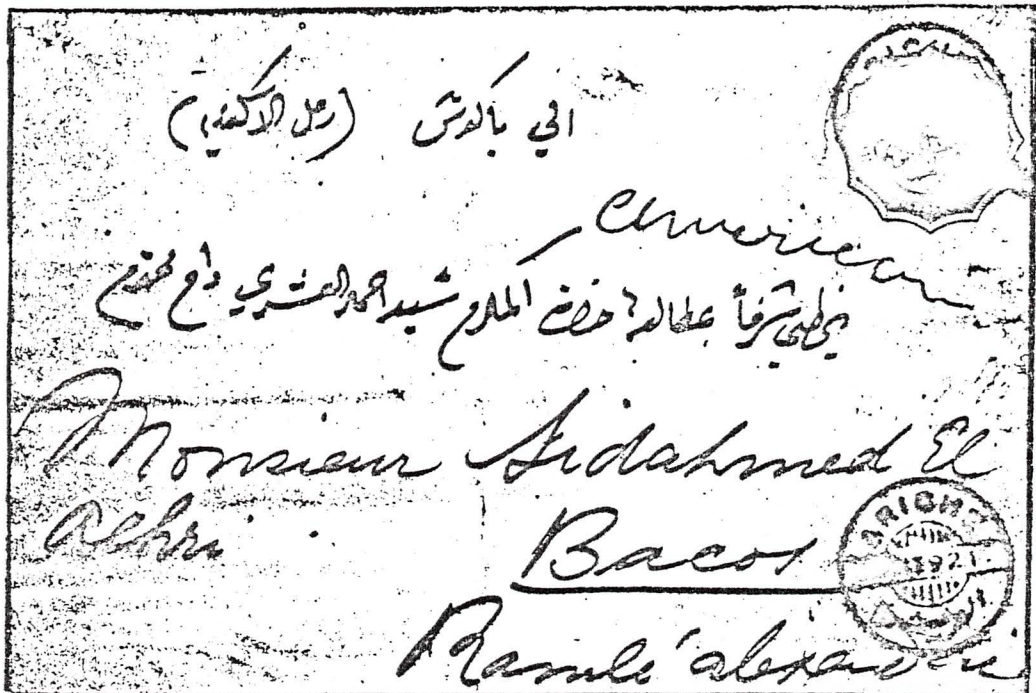 الي باكوس (رمل الاسكندرية)
American
يحظي شرفاً بمطالعة حضرة المكرم سيد احمد العشري دام محترم
Monsieur Sidahmed El
Achri
Bacos
Ramlé Alexandrie